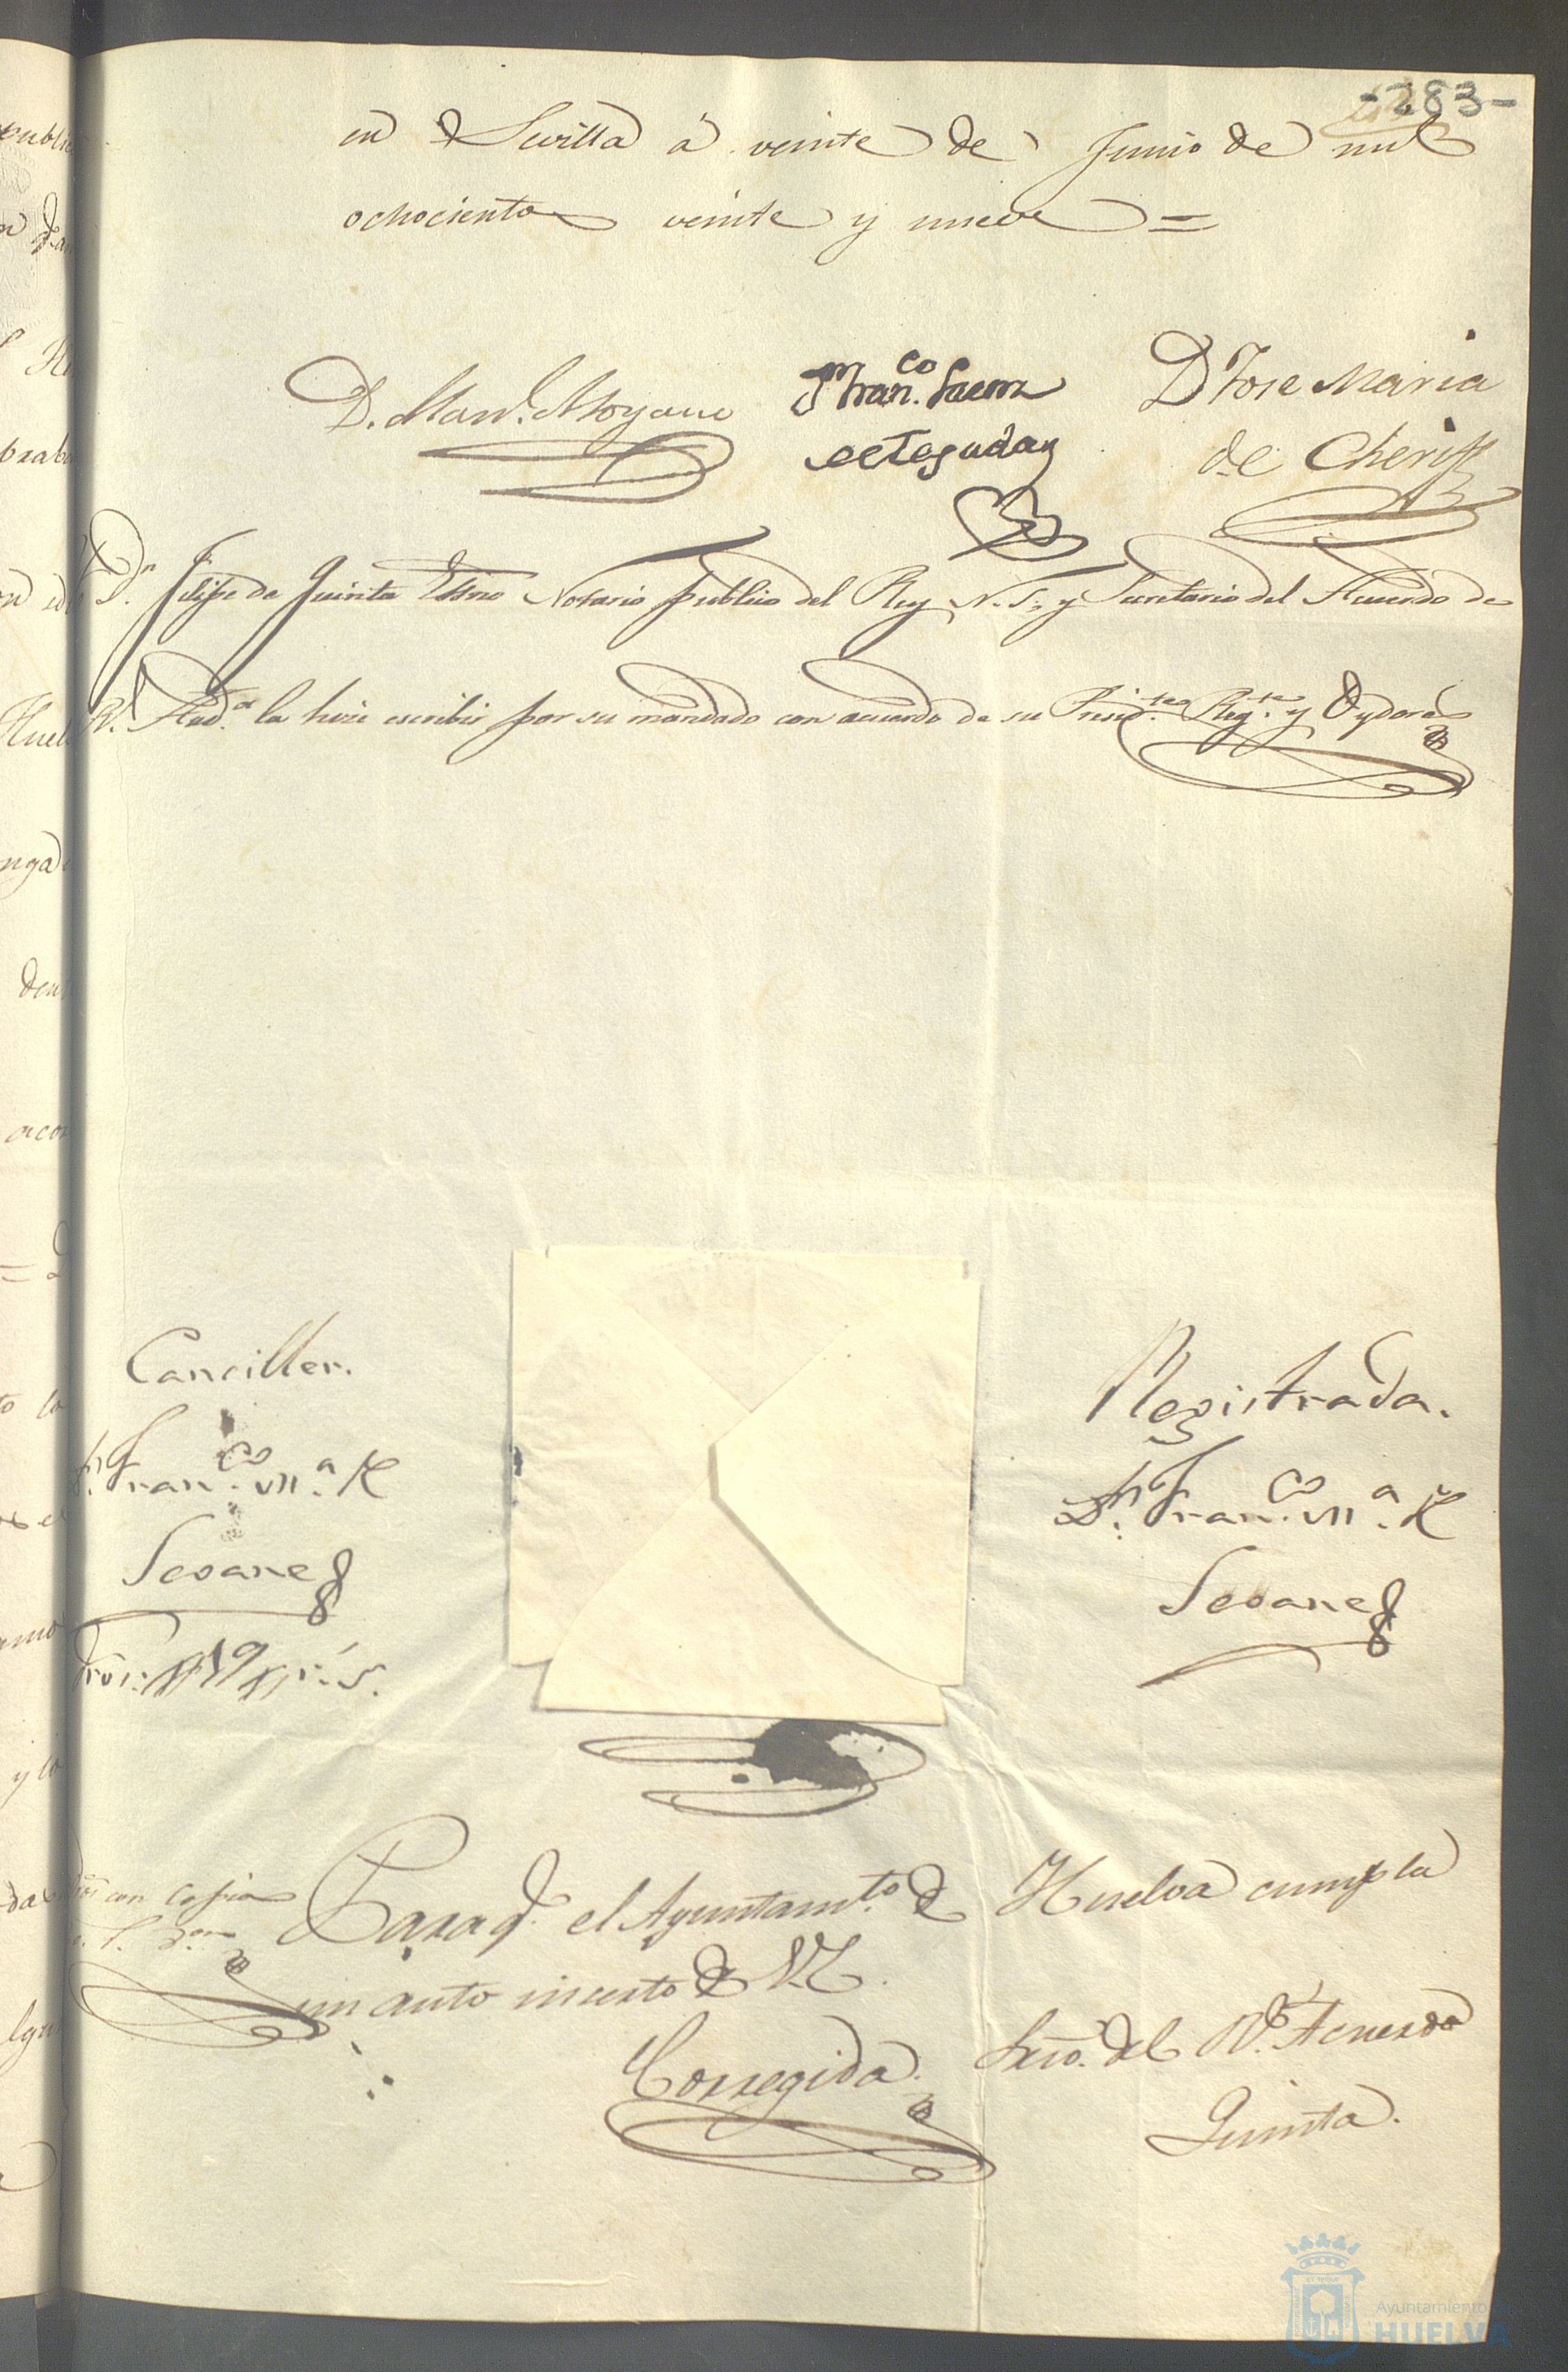 -283-
en d Sevilla à veinte de Junio de mil
ochocientos veinte y nueve =
D. Man.l Moyano
Fran.co Saenz
de Tejada
D Jose Maria
de Cherif
D.n Felipe de Quinta Essno Notario publico del Rey N. S. y Secretario del Acuerdo de
R.l Aud.a la hize escribir por su mandado con acuerdo de su Presid.te Reg.te y Oydores
Canciller.
D.n Fran.co M.a R
Seoane
Registrada.
D.n Fran.co M.a R
Seoane
dros con copia
Para q.e el Ayuntam.to d Huelva cumpla
un auto inserto d V.E.
Corregida.
Srio. del R.l Acuerdo
Quinta.
Ayuntamiento de
HUELVA